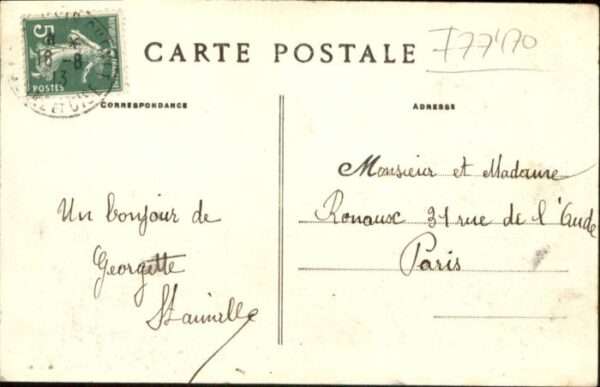 CARTE POSTALE
F77170
5
18-8
13
CORRESPONDANCE
ADRESSE
Un bonjour de
Georgette
Monsieur et Madame
Ronaux 31 rue de l'Aude
Paris